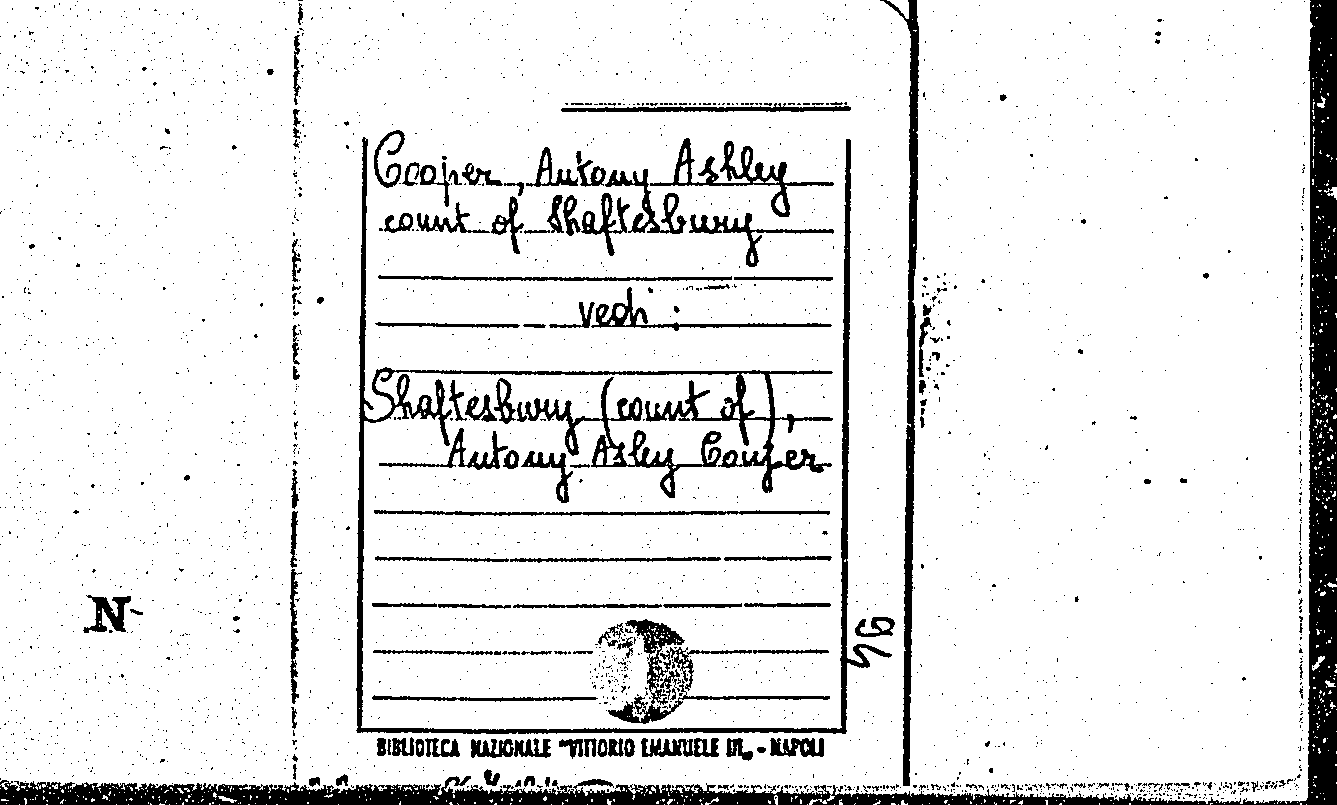 Cooper, Antony Ashley
count of Shaftesbury
vedi :
Shaftesbury (count of),
Antony Ashley Couper
BIBLIOTECA NAZIONALE "VITTORIO EMANUELE III„ - NAPOLI
N